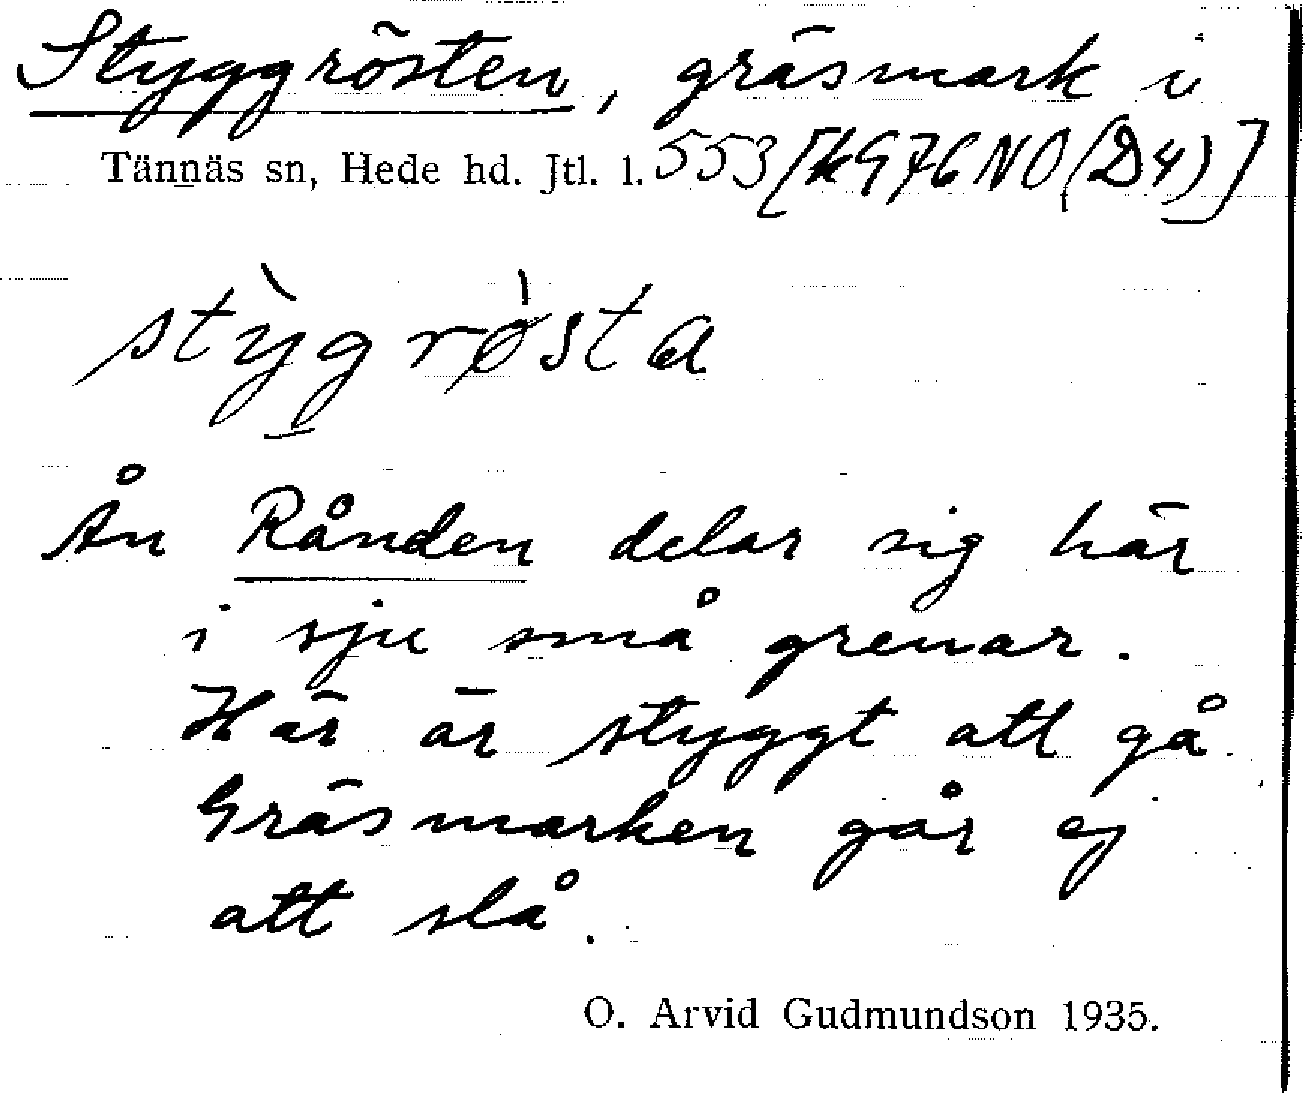 Styggrösten, gräsmark i
Tännäs sn, Hede hd. Jtl. l. 553 [kG76NO(D4)]
stỳgrø̀sta
Ån Rånden delar sig här
i sju små grenar.
Här är styggt att gå
Gräsmarken går ej
att slå.
O. Arvid Gudmundson 1935.